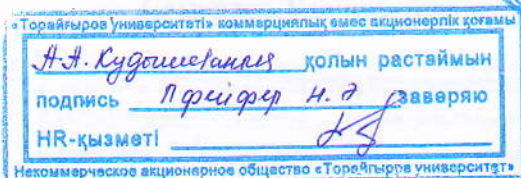 «Торайғыров университеті» коммерциялық емес акционерлік қоғамы
А.А. қолын растаймын
подпись Пфейфер Н.Э заверяю
HR-қызметі
Некоммерческое акционерное общество «Торайғыров университет»